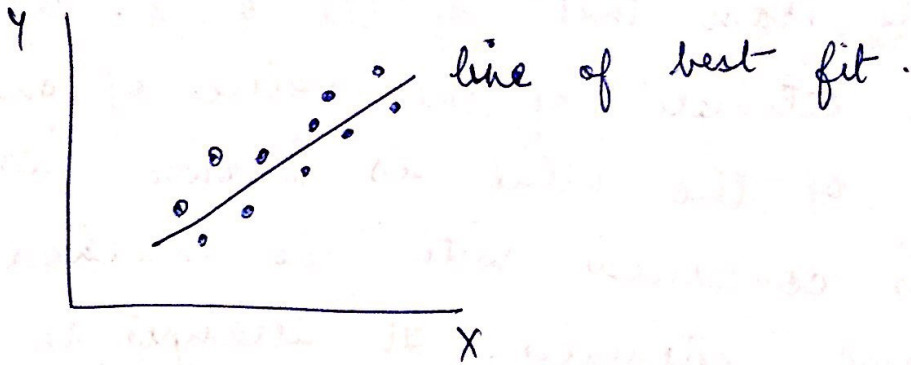 Y
line of best fit.
X